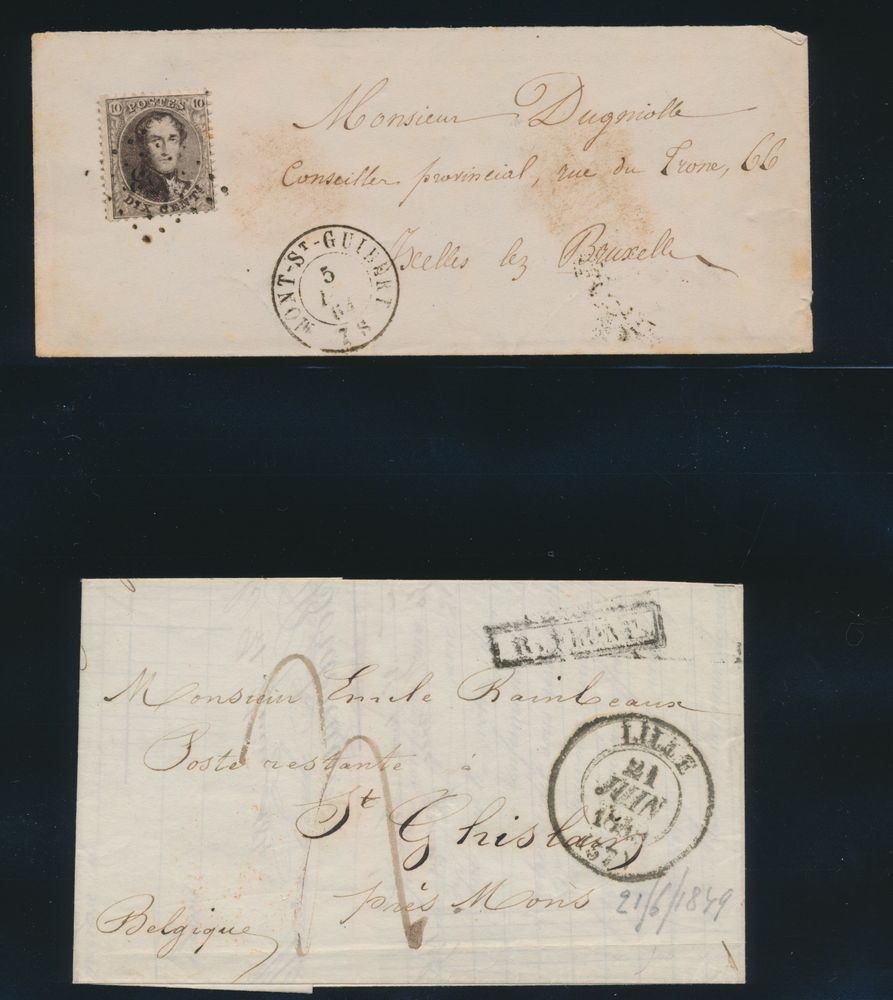 10 POSTES 10
DIX CENTS
Monsieur Dugniolle
Conseiller provincial, rue du Trone, 66
Ixelles lez Bruxelles
MONT-ST-GUIBERT
5
64
7 S
Monsieur Emile Rainbeaux
Poste restante à
St Ghislain
près Mons
Belgique
LILLE
21
JUIN
(57)
21/6/1849